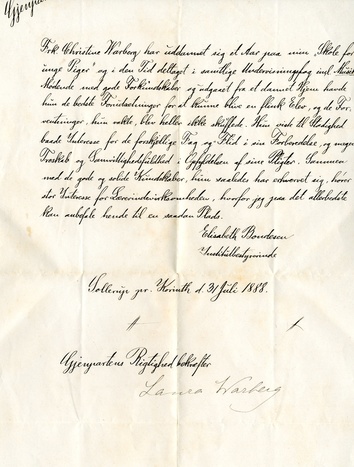 Gjenpart
Frk. Christine Warberg har uddannet sig et Aar paa min "Skole for
unge Piger" og i den Tid deltaget i samtlige Undervisningsfag incl. Musik
Mødende med gode Forkundskaber og udgaaet fra et dannet Hjem havde
hun de bedste Forudsætninger for at kunne blive en flink Elev, og de For-
ventninger, hun vakte, blev heller ikke skuffede. Hun viste til Stadighed
baade Interesse for de forskjellige Fag og Flid i sin Forberedelse, og megen
Troskab og Samvittighedsfuldhed i Opfyldelsen af sine Pligter. Sammen
med de gode og solide Kundskaber, hun saaledes har erhvervet sig, hører
stor Interesse for Lærerindevirksomheden, hvorfor jeg paa det allerbedste
kan anbefale hende til en saadan Plads.
Elisabeth Bondesen
Institutbestyrerinde
Sollerup pr. Korinth d. 31 Juli 1888.
Gjenpartens Rigtighed bekræfter
Laura Warberg